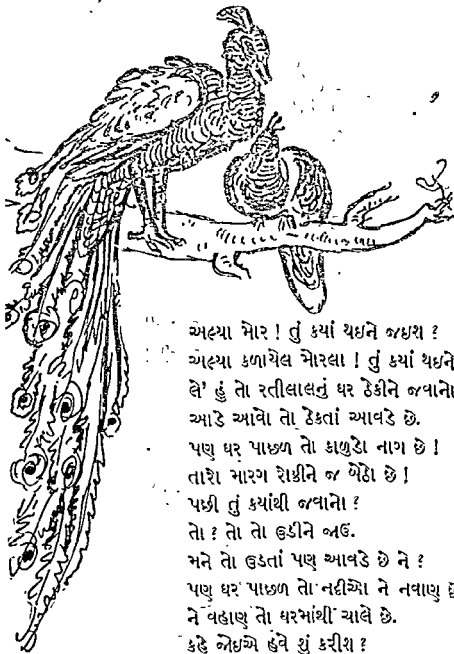 અલ્યા મોર ! તું કયાં થઇને જઇશ ?
અલ્યા કળાયેલ મોરલા ! તું કયાં થઇને
લે' હું તો રતીલાલનું ઘર ઠેકીને જવાનો
આડે આવો તો ઠેકતાં આવડે છે.
પણ ઘર પાછળ તો કાળુડો નાગ છે !
તારો મારગ રોકીને જ બેઠો છે !
પછી તું કયાંથી જવાનો ?
તો ? તો તો ઉડીને જાઉ.
મને તો ઉડતાં પણ આવડે છે ને ?
પણ ઘર પાછળ તો નદીઓ ને નવાણ છે
ને વહાણ તો ઘરમાંથી ચાલે છે.
કહે જોઇએ હવે શું કરીશ ?